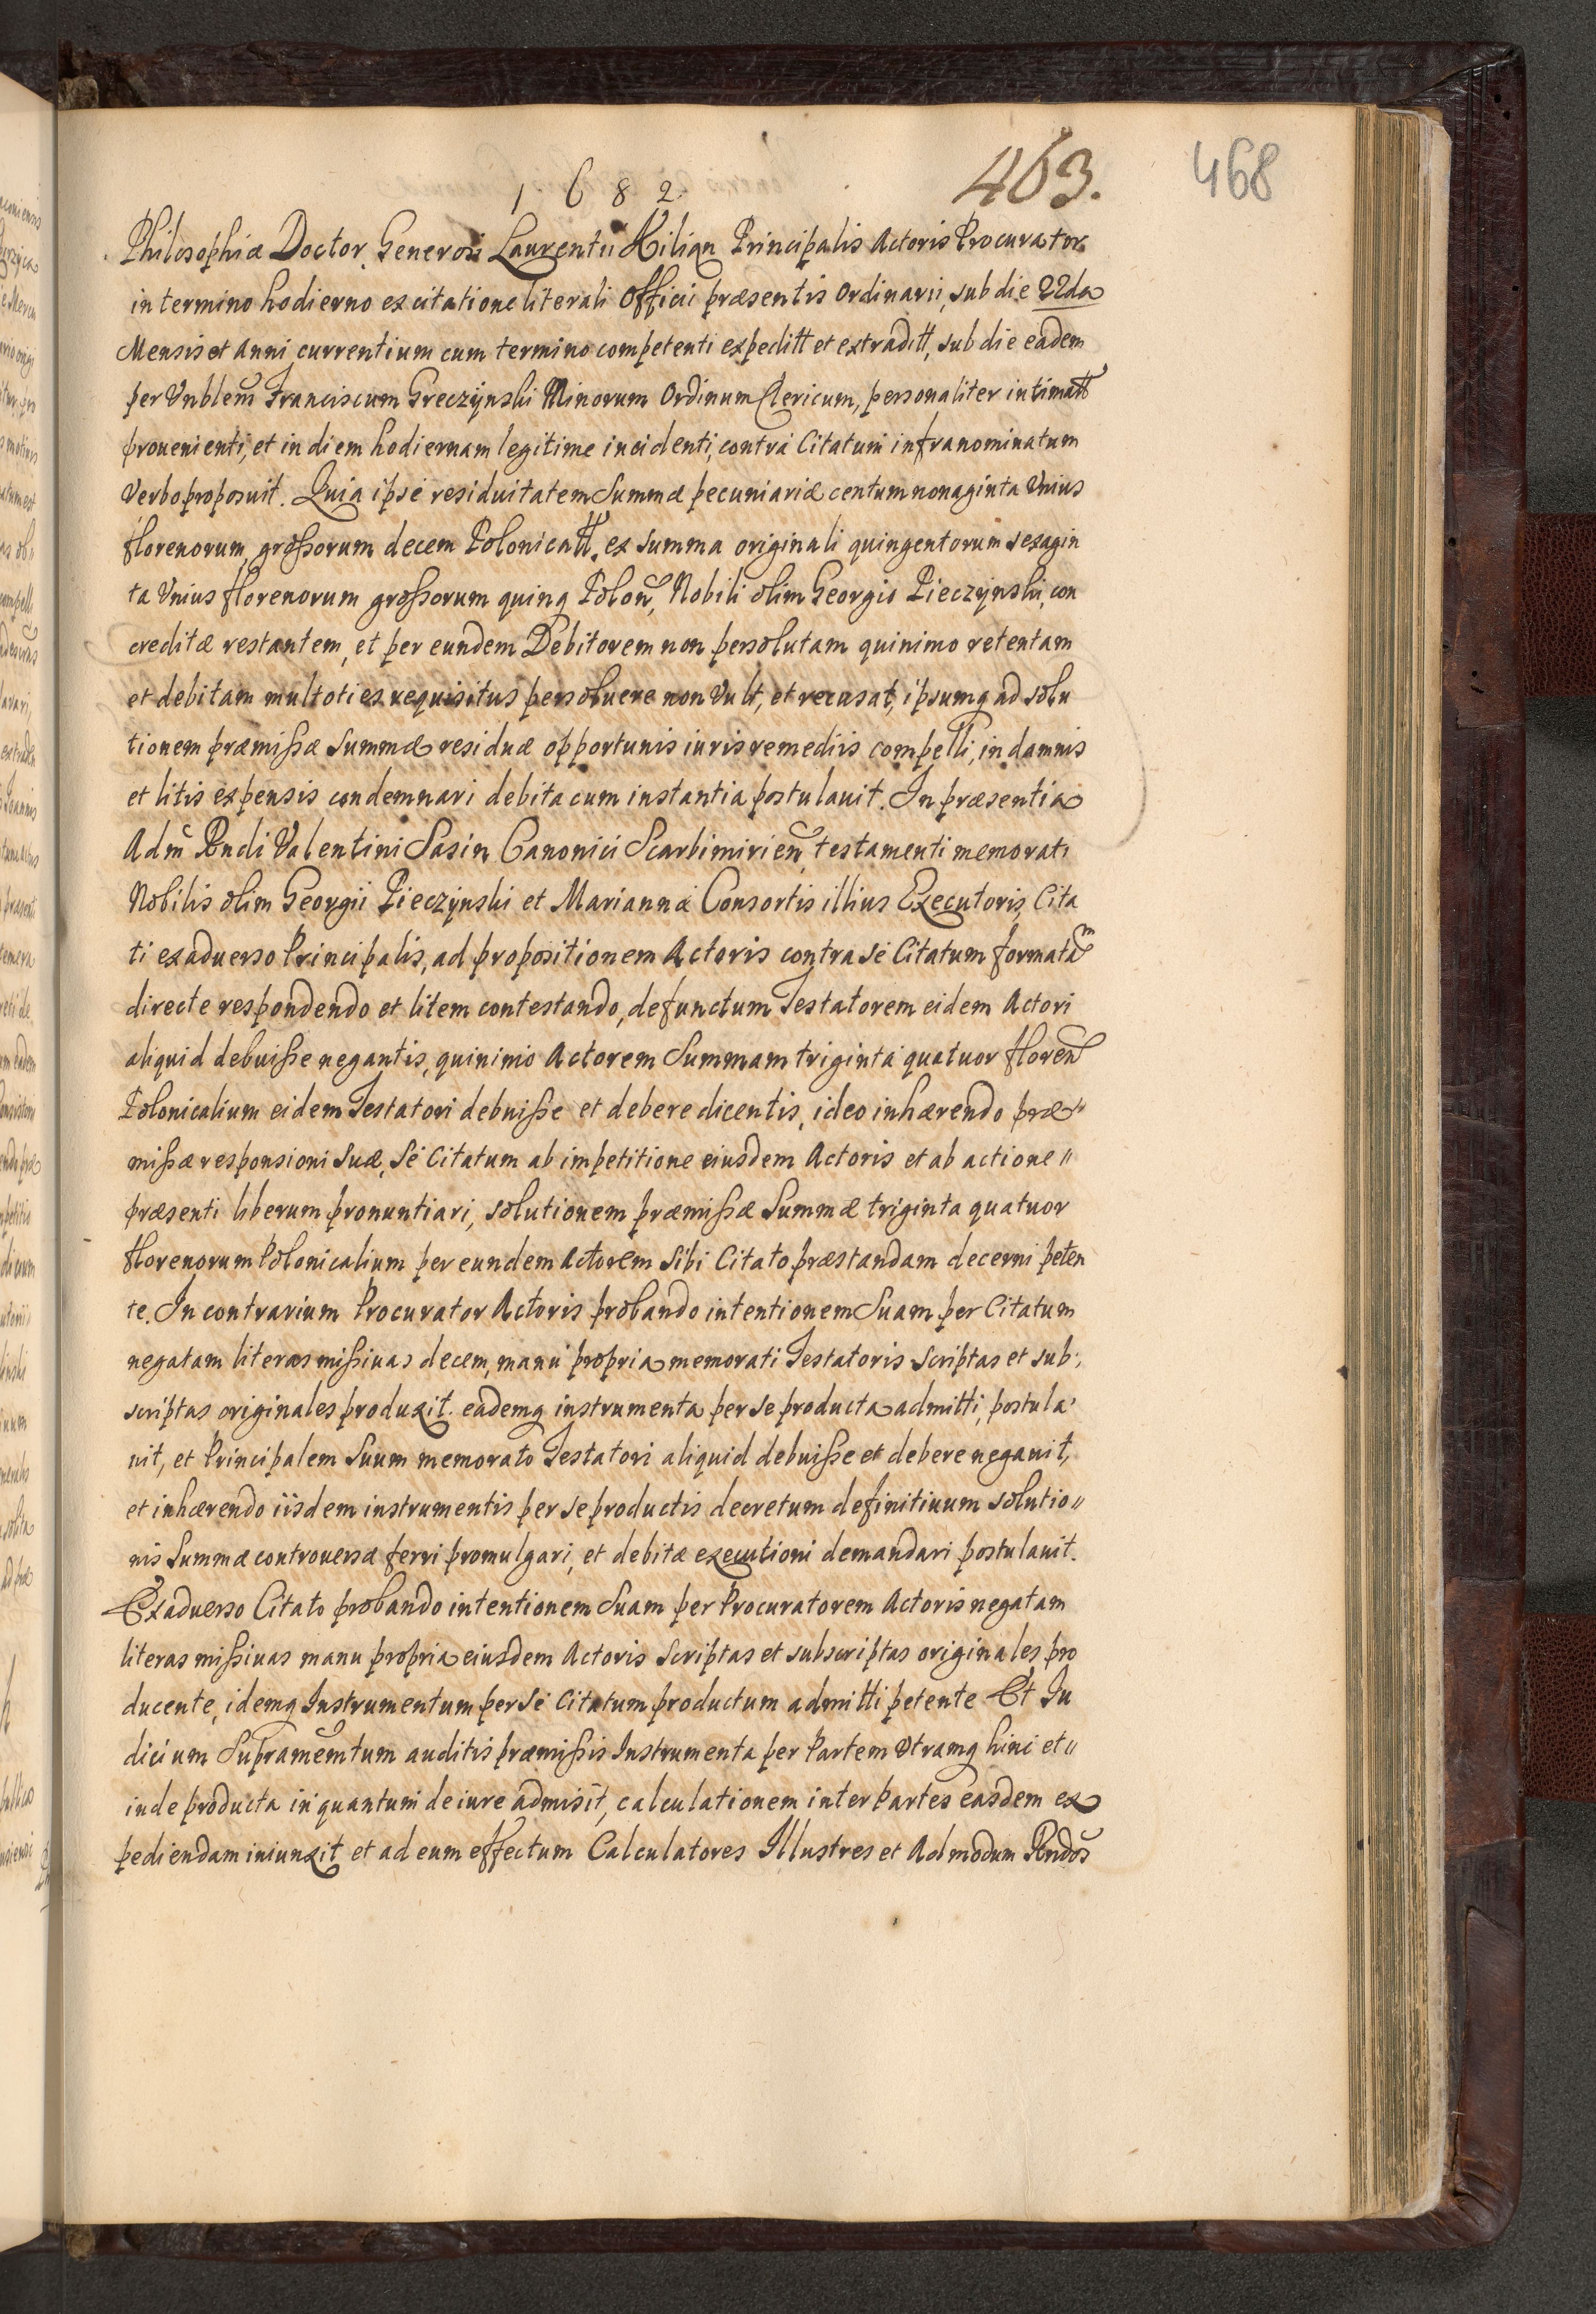 1 6 8 2.
463.
468
Philosophiæ Doctor Generosi Laurentii Kilian Principalis Actoris Procurator
in termino hodierno ex citatione literali Officii præsentis Ordinarii, sub die 22da
Mensis et Anni currentium cum termino competenti expeditt et extraditt, sub die eadem
per Vnblem̃ Franciscum Greczÿnski Minorum Ordinum Clericum, personaliter intimatt
prouenienti, et in diem hodiernam legitime incidenti, contra Citatum infranominatum
Verbo proposuit. Quia ipse residuitatem Summæ pecuniariæ centum nonaginta Vnius
florenorum, großorum decem Polonicatt, ex summa originali quingentorum sexagin
ta Vnius florenorum großorum quinq Polon̄, Nobili olim Georgio Pieczÿnski, con
creditæ restantem, et per eundem Debitorem non persolutam quinimo retentam
et debitam multoties requisitus persoluere non Vult, et recusat, ipsumq ad solu
tionem præmißæ Summæ residuæ opportunis iuris remediis compelli, in damnis
et litis expensis condemnari debita cum instantia postulauit. In præsentia
Adm̃ Rndi Valentini Sasin Canonici Scarbimirien̄, testamenti memorati
Nobilis olim Georgii Pieczÿnski et Mariannæ Consortis illius Executoris, Cita
ti ex aduerso Principalis, ad propositionem Actoris contra se Citatum formatam
directe respondendo et litem contestando, defunctum Testatorem eidem Actori
aliquid debuiße negantis, quinimo Actorem Summam triginta quatuor floren̄
Polonicalium eidem Testatori debuiße et debere dicentis, ideo inhærendo præ"
mißæ responsioni Suæ, Se Citatum ab impetitione eiusdem Actoris et ab actione "
præsenti liberum pronuntiari, solutionem præmißæ Summæ triginta quatuor
florenorum Polonicalium per eundem Actorem Sibi Citato præstandam decerni peten
te. In contrarium Procurator Actoris probando intentionem Suam per Citatum
negatam literas mißiuas decem, manu propria memorati Testatoris Scriptas et sub:
scriptas originales produxit. eademq instrumenta per se producta admitti, postula'
uit, et Principalem Suum memorato Testatori aliquid debuiße et debere negauit,
et inhærendo iisdem instrumentis per se productis decretum definitiuum solutio"
nis Summæ controuersæ ferri promulgari, et debitæ executioni demandari postulauit.
Ex aduerso Citato probando intentionem Suam per Procuratorem Actoris negatam
literas mißiuas manu propria eiusdem Actoris Scriptas et subscriptas originales pro
ducente, idemq Instrumentum per Se Citatum productum admitti petente Et Iu
dicium Supramem̄tum auditis præmißis Instrumenta per Partem Vtramq hinc et "
inde producta in quantum de iure admisit, calculationem inter Partes easdem ex
pediendam iniunxit et ad eum effectum Calculatores Illustres et Admodum Rndos